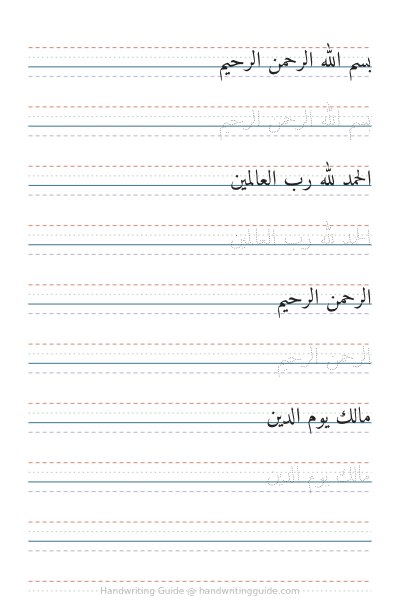 بسم الله الرحمن الرحيم
بسم الله الرحمن الرحيم
الحمد لله رب العالمين
الحمد لله رب العالمين
الرحمن الرحيم
الرحمن الرحيم
مالك يوم الدين
مالك يوم الدين
Handwriting Guide @ handwritingguide.com